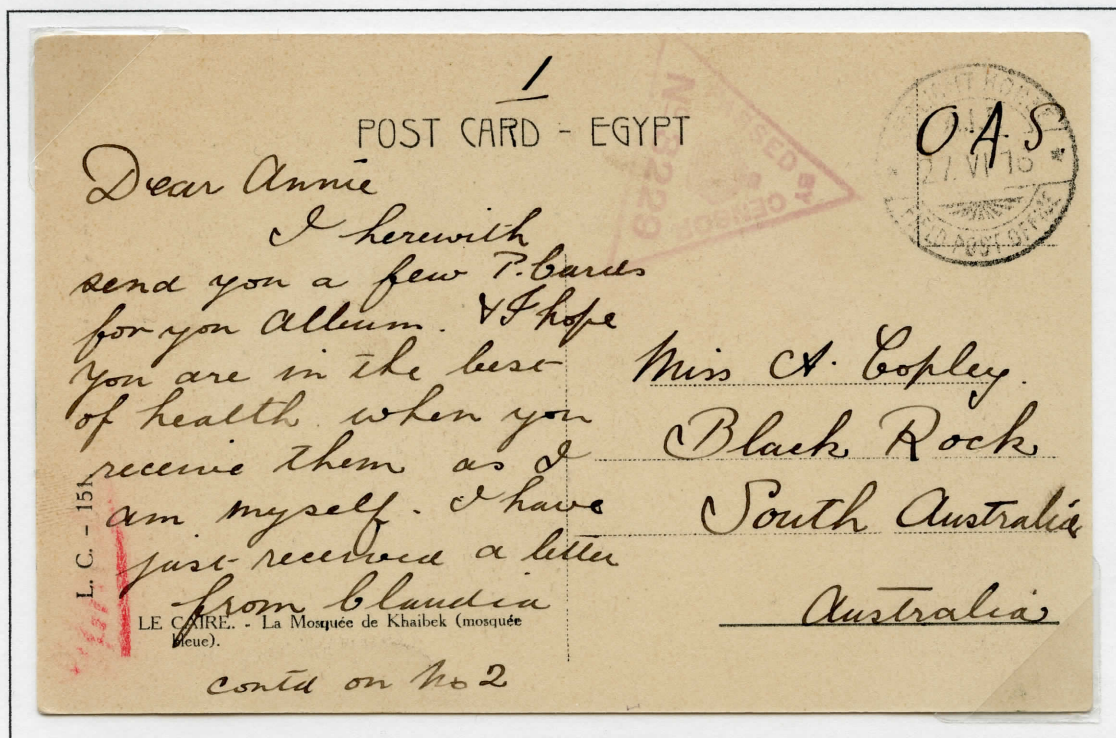 1
POST CARD - EGYPT
OAS
27 VI 16
FIELD POST OFFICE
PASSED BY
CENSOR
No 3229
Dear Annie
I herewith
send you a few P. Cards
for you Album. & I hope
you are in the best
of health when you
receive them as I
am myself. I have
just received a letter
from Claudia
contd on No 2
Miss A. Copley.
Black Rock
South Australia
Australia
L. C. - 151
LE CAIRE. - La Mosquée de Khaibek (mosquée
bleue).